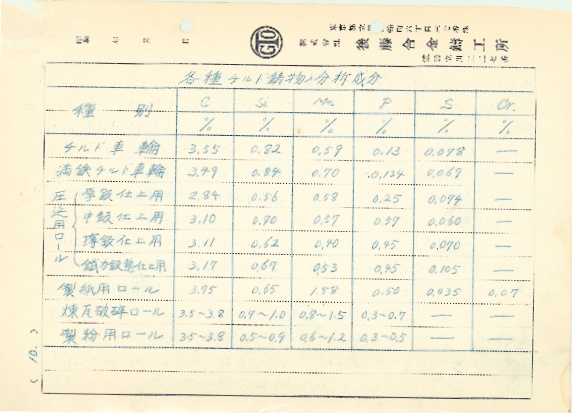 株式会社 後藤合金鋳工所
GTO
各種チルド鋳物ノ分析成分
種別 C Si Mn P S Cr.
% % % % % %
チルド車輪 3.55 0.82 0.59 0.13 0.098 —
満鉄チルド車輪 3.49 0.84 0.70 0.134 0.069 —
圧延用ロール
厚鈑仕上用 2.84 0.56 0.58 0.25 0.094 —
中鈑仕上用 3.10 0.70 0.57 0.57 0.060 —
薄鈑仕上用 3.11 0.62 0.40 0.45 0.070 —
3.17 0.67 0.53 0.45 0.105 —
製紙用ロール 3.75 0.65 1.58 0.50 0.035 0.07
煉瓦破砕ロール 3.5~3.8 0.9~1.0 0.8~1.5 0.3~0.7 — —
製粉用ロール 3.5~3.8 0.5~0.9 0.6~1.2 0.3~0.5 — —
(10.)